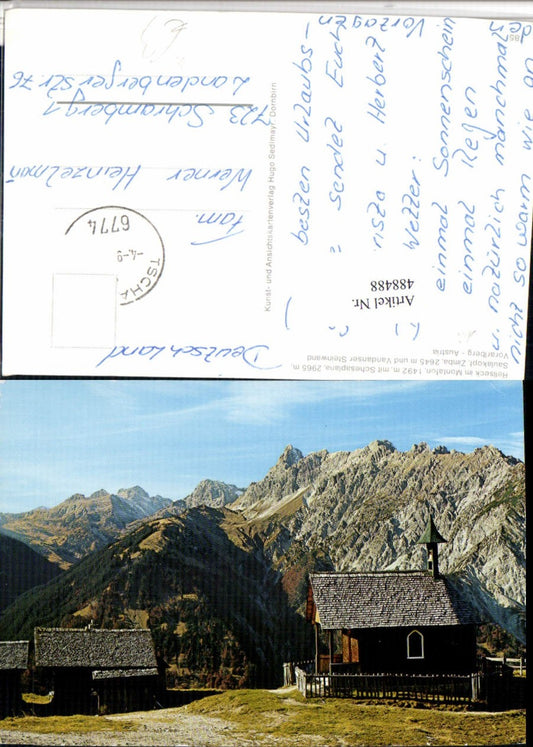 Deutschland
Fam.
Werner Heinzelmann
723 Schramberg 1
Landenberger Str. 76
6774
TSCHA
-4.-9
Kunst- und Ansichtskartenverlag Hugo Sedlmayr Dornbirn
Relsseck im Montafon, 1492 m, mit Schesaplana, 2965 m,
Saulakopf, Zimba, 2645 m und Vandanser Steinwand
Vorarlberg - Austria
Artikel Nr.
488488
nicht so warm wie an den
u. natürlich manchmal
einmal Regen
einmal Sonnenschein
Wetter:
Vorzagen
u. Herbert
sendet Euch
besten Urlaubs-